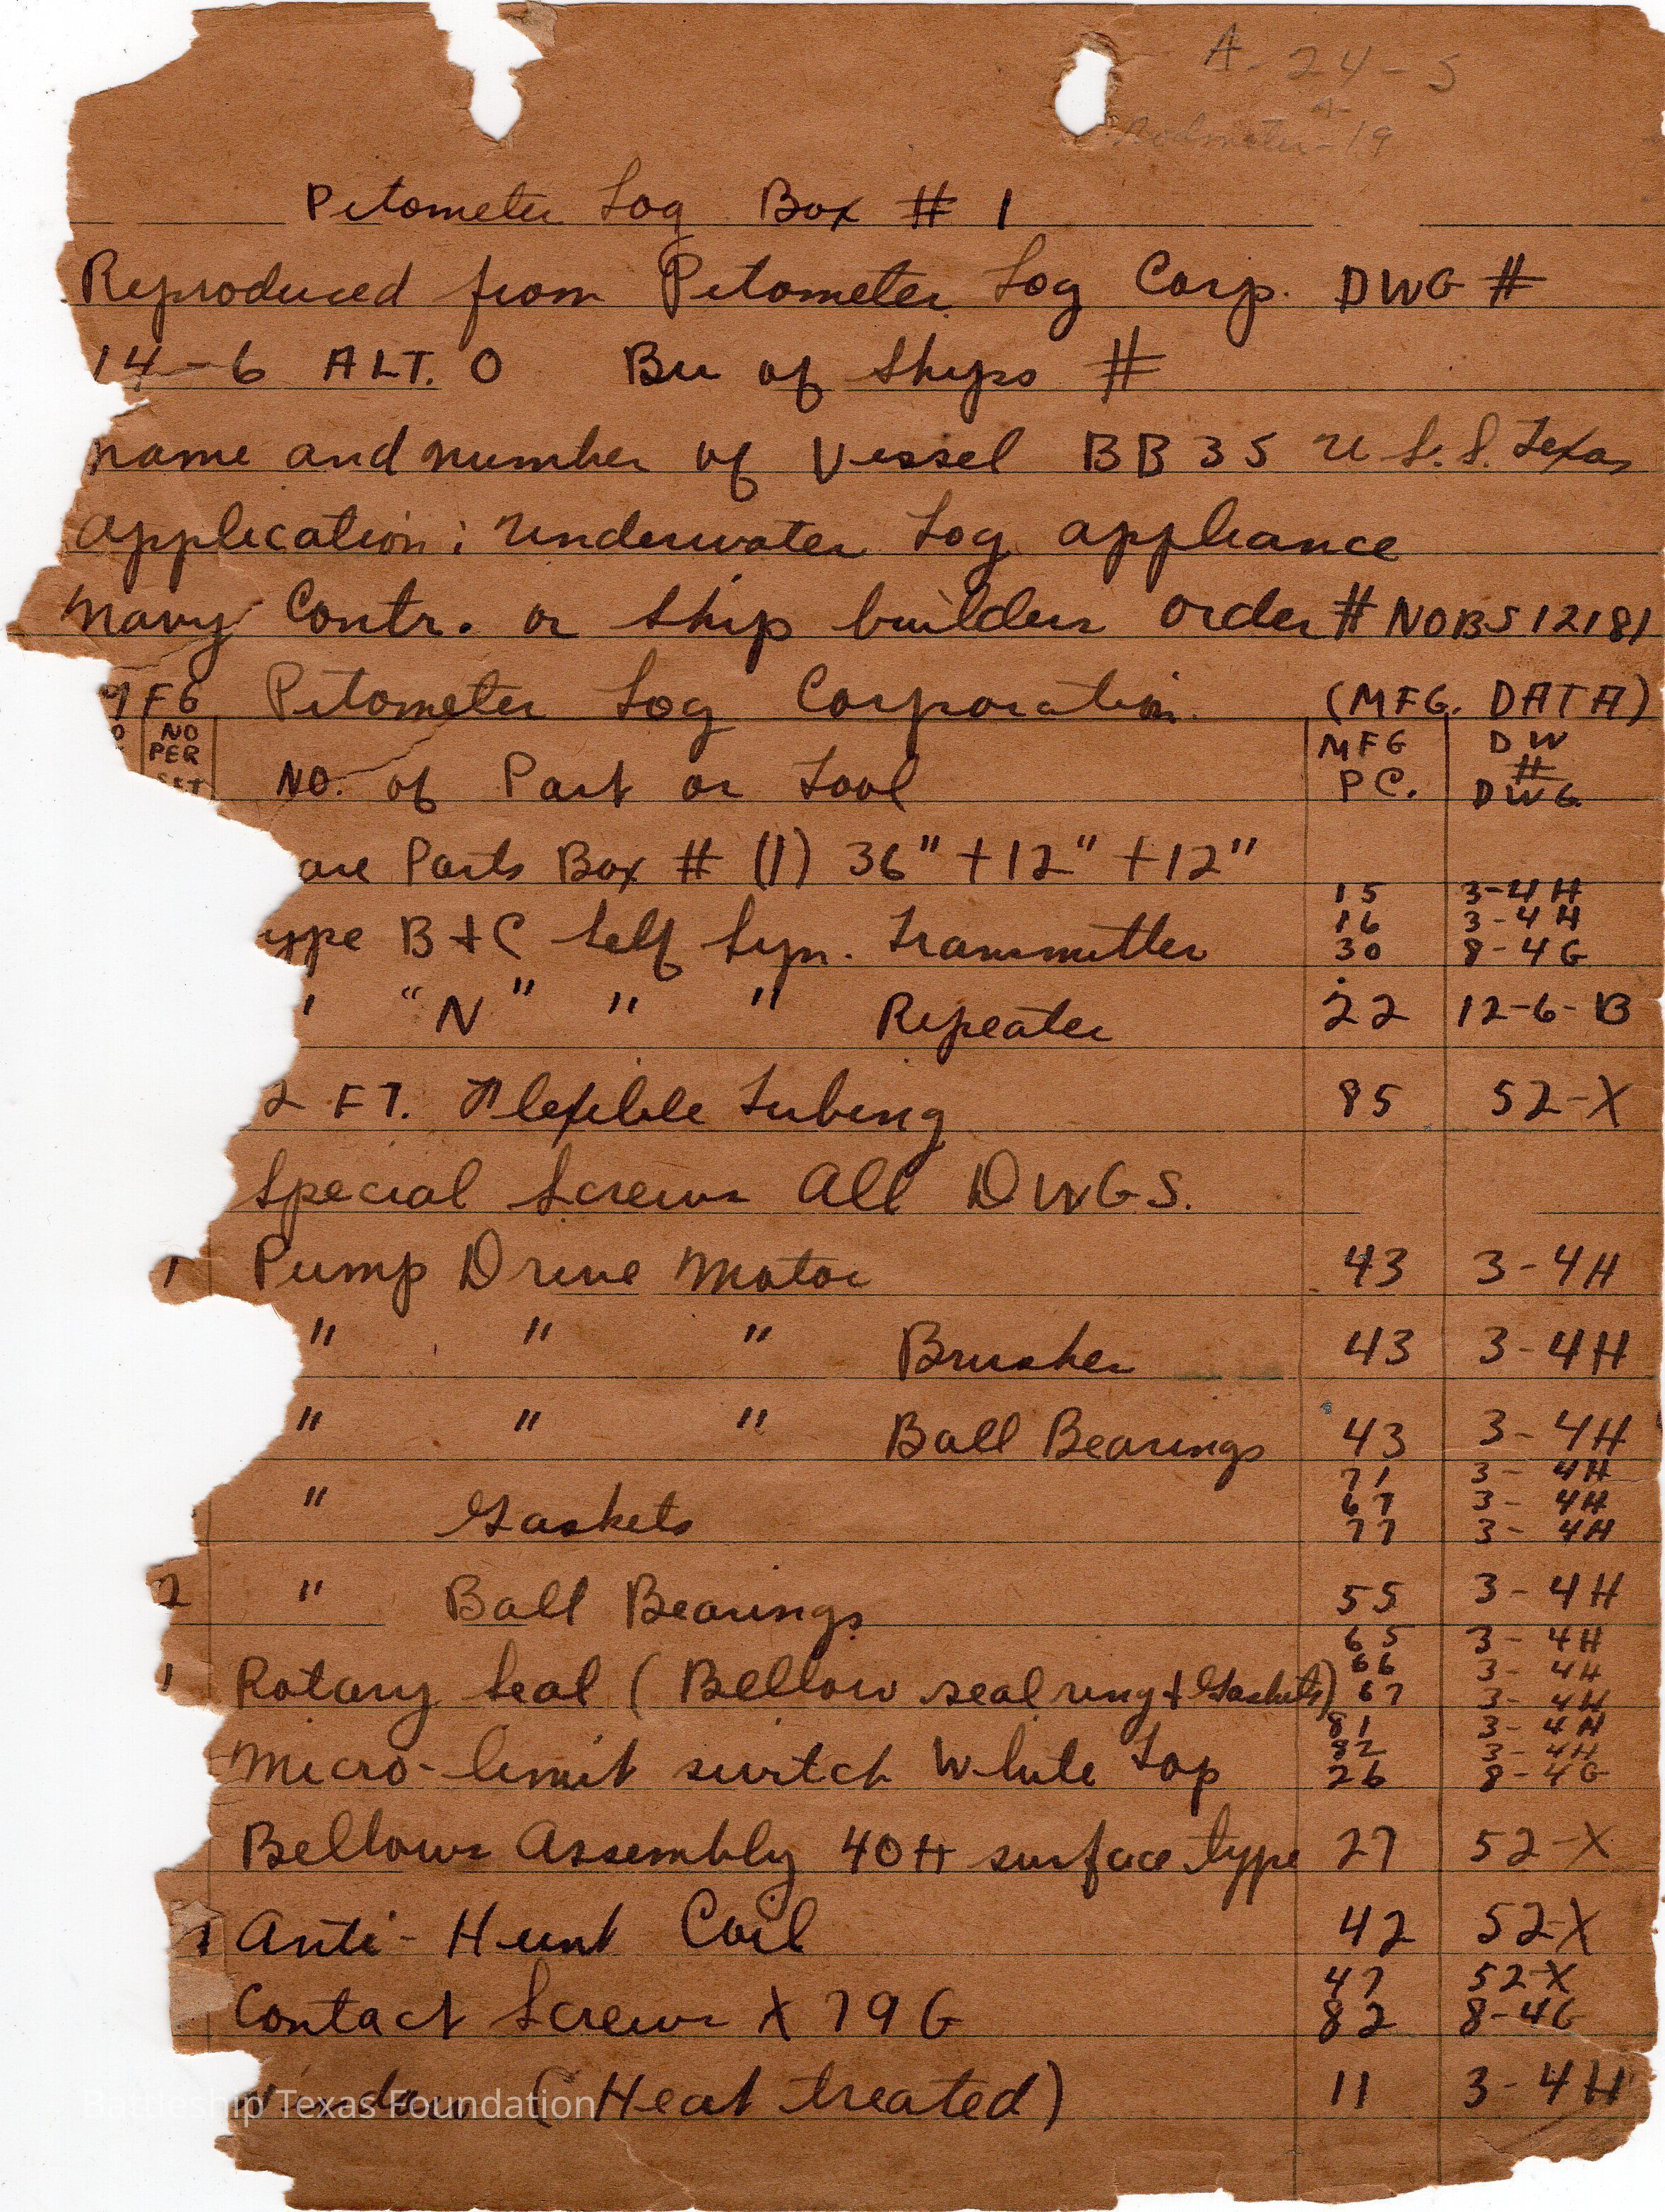 A-24-5
Rodmeter-19
Pitometer Log Box # 1
Reproduced from Pitometer Log Corp. DWG #
14-6 ALT. O Bu of Ships #
name and number of Vessel BB35 U.S.S. Texas
Application: Underwater Log appliance
Navy Contr. or Ship builders order # NOBS12181
MFG Pitometer Log Corporation. (MFG. DATA)
NO PER SET NO. of Part or Tool MFG PC. DW # DWG
are Parts Box # (1) 36" + 12" + 12"
15 3-4H
ype B + C Self Syn. Transmitter 16 3-4H
30 8-4G
" "N" " " Repeater 22 12-6-B
2 FT. Flexible Tubing 85 52-X
Special Screws All DWGS.
1 Pump Drive Motor 43 3-4H
" " " Brushes 43 3-4H
" " " Ball Bearings 43 3-4H
71 3-4H
" Gaskets 67 3-4H
77 3-4H
2 " Ball Bearings 55 3-4H
65 3-4H
66 3-4H
1 Rotary Seal (Bellow seal ring + Gaskets) 67 3-4H
81 3-4H
Micro-limit switch White Top 82 3-4H
26 8-4G
Bellows Assembly 40H surface type 27 52-X
1 Anti-Hunt Coil 42 52-X
47 52-X
Contact Screws X 79G 82 8-4G
Window (Heat treated) 11 3-4H
Battleship Texas Foundation